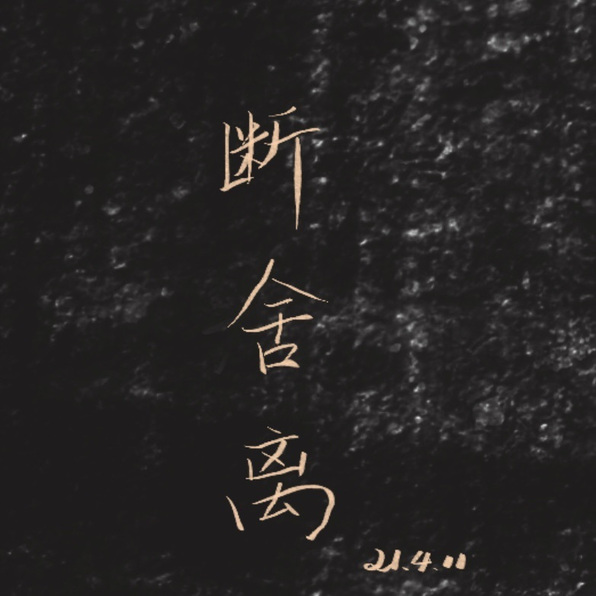 断舍离
21.4.11